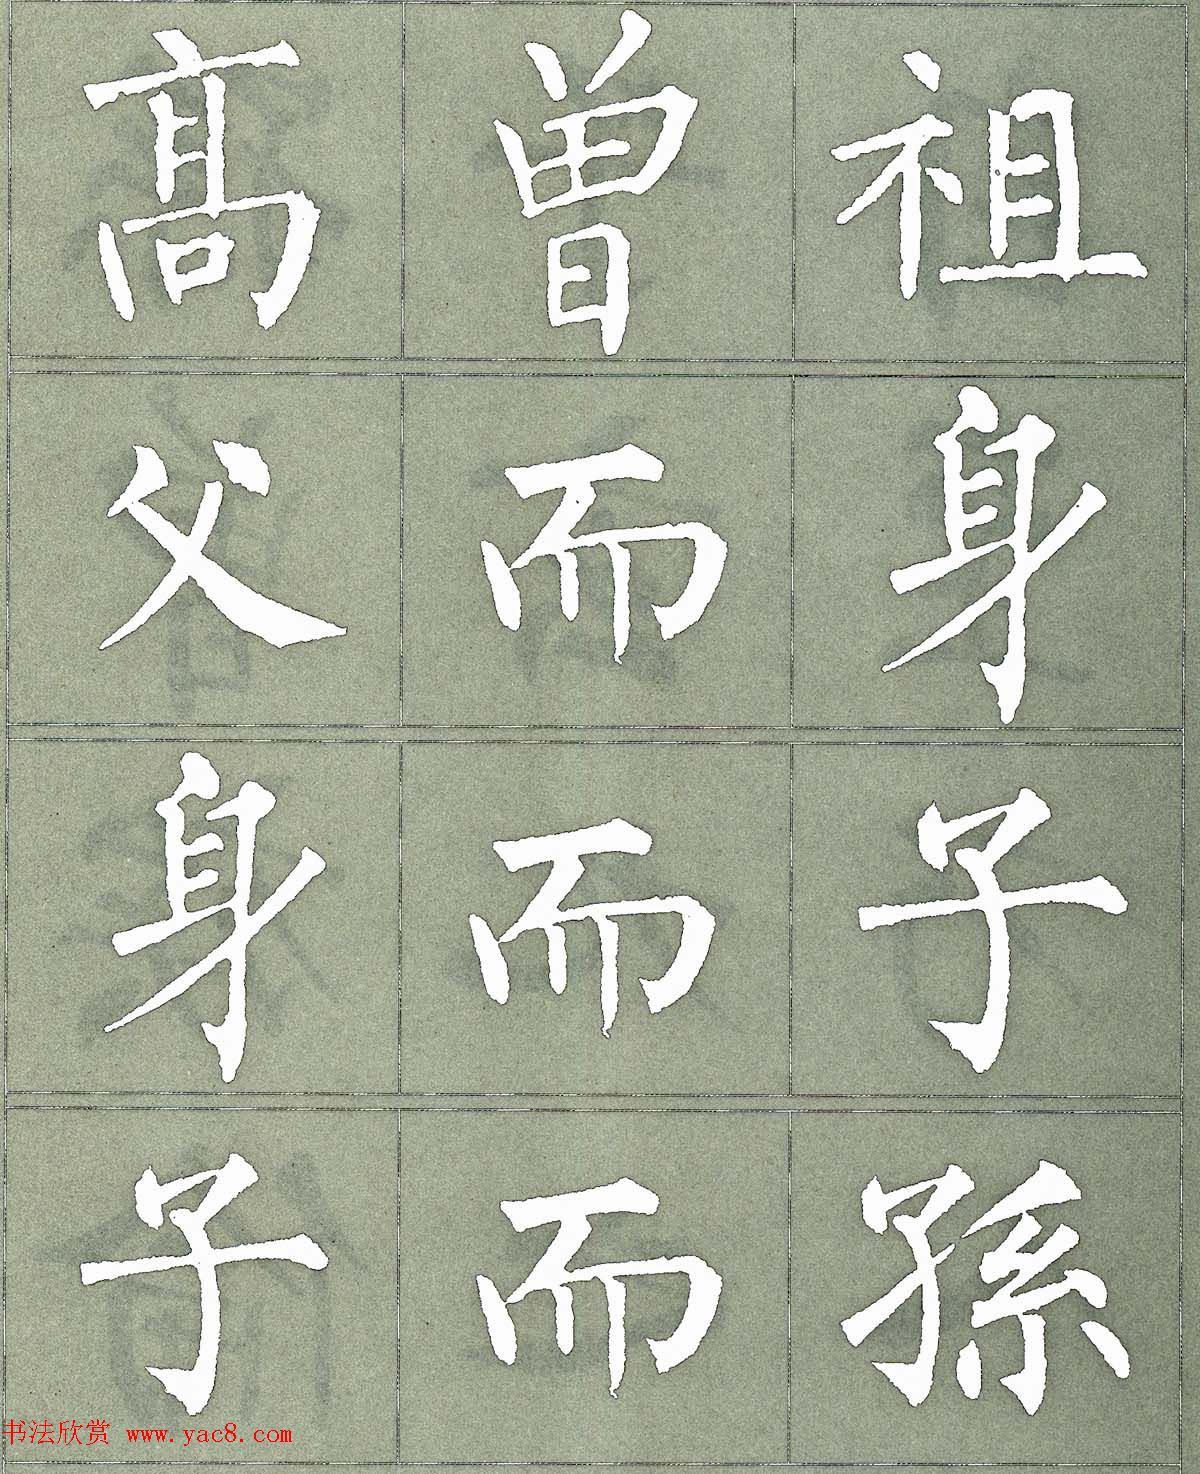 高曾祖
父而身
身而子
子而孫
书法欣赏 www.yac8.com